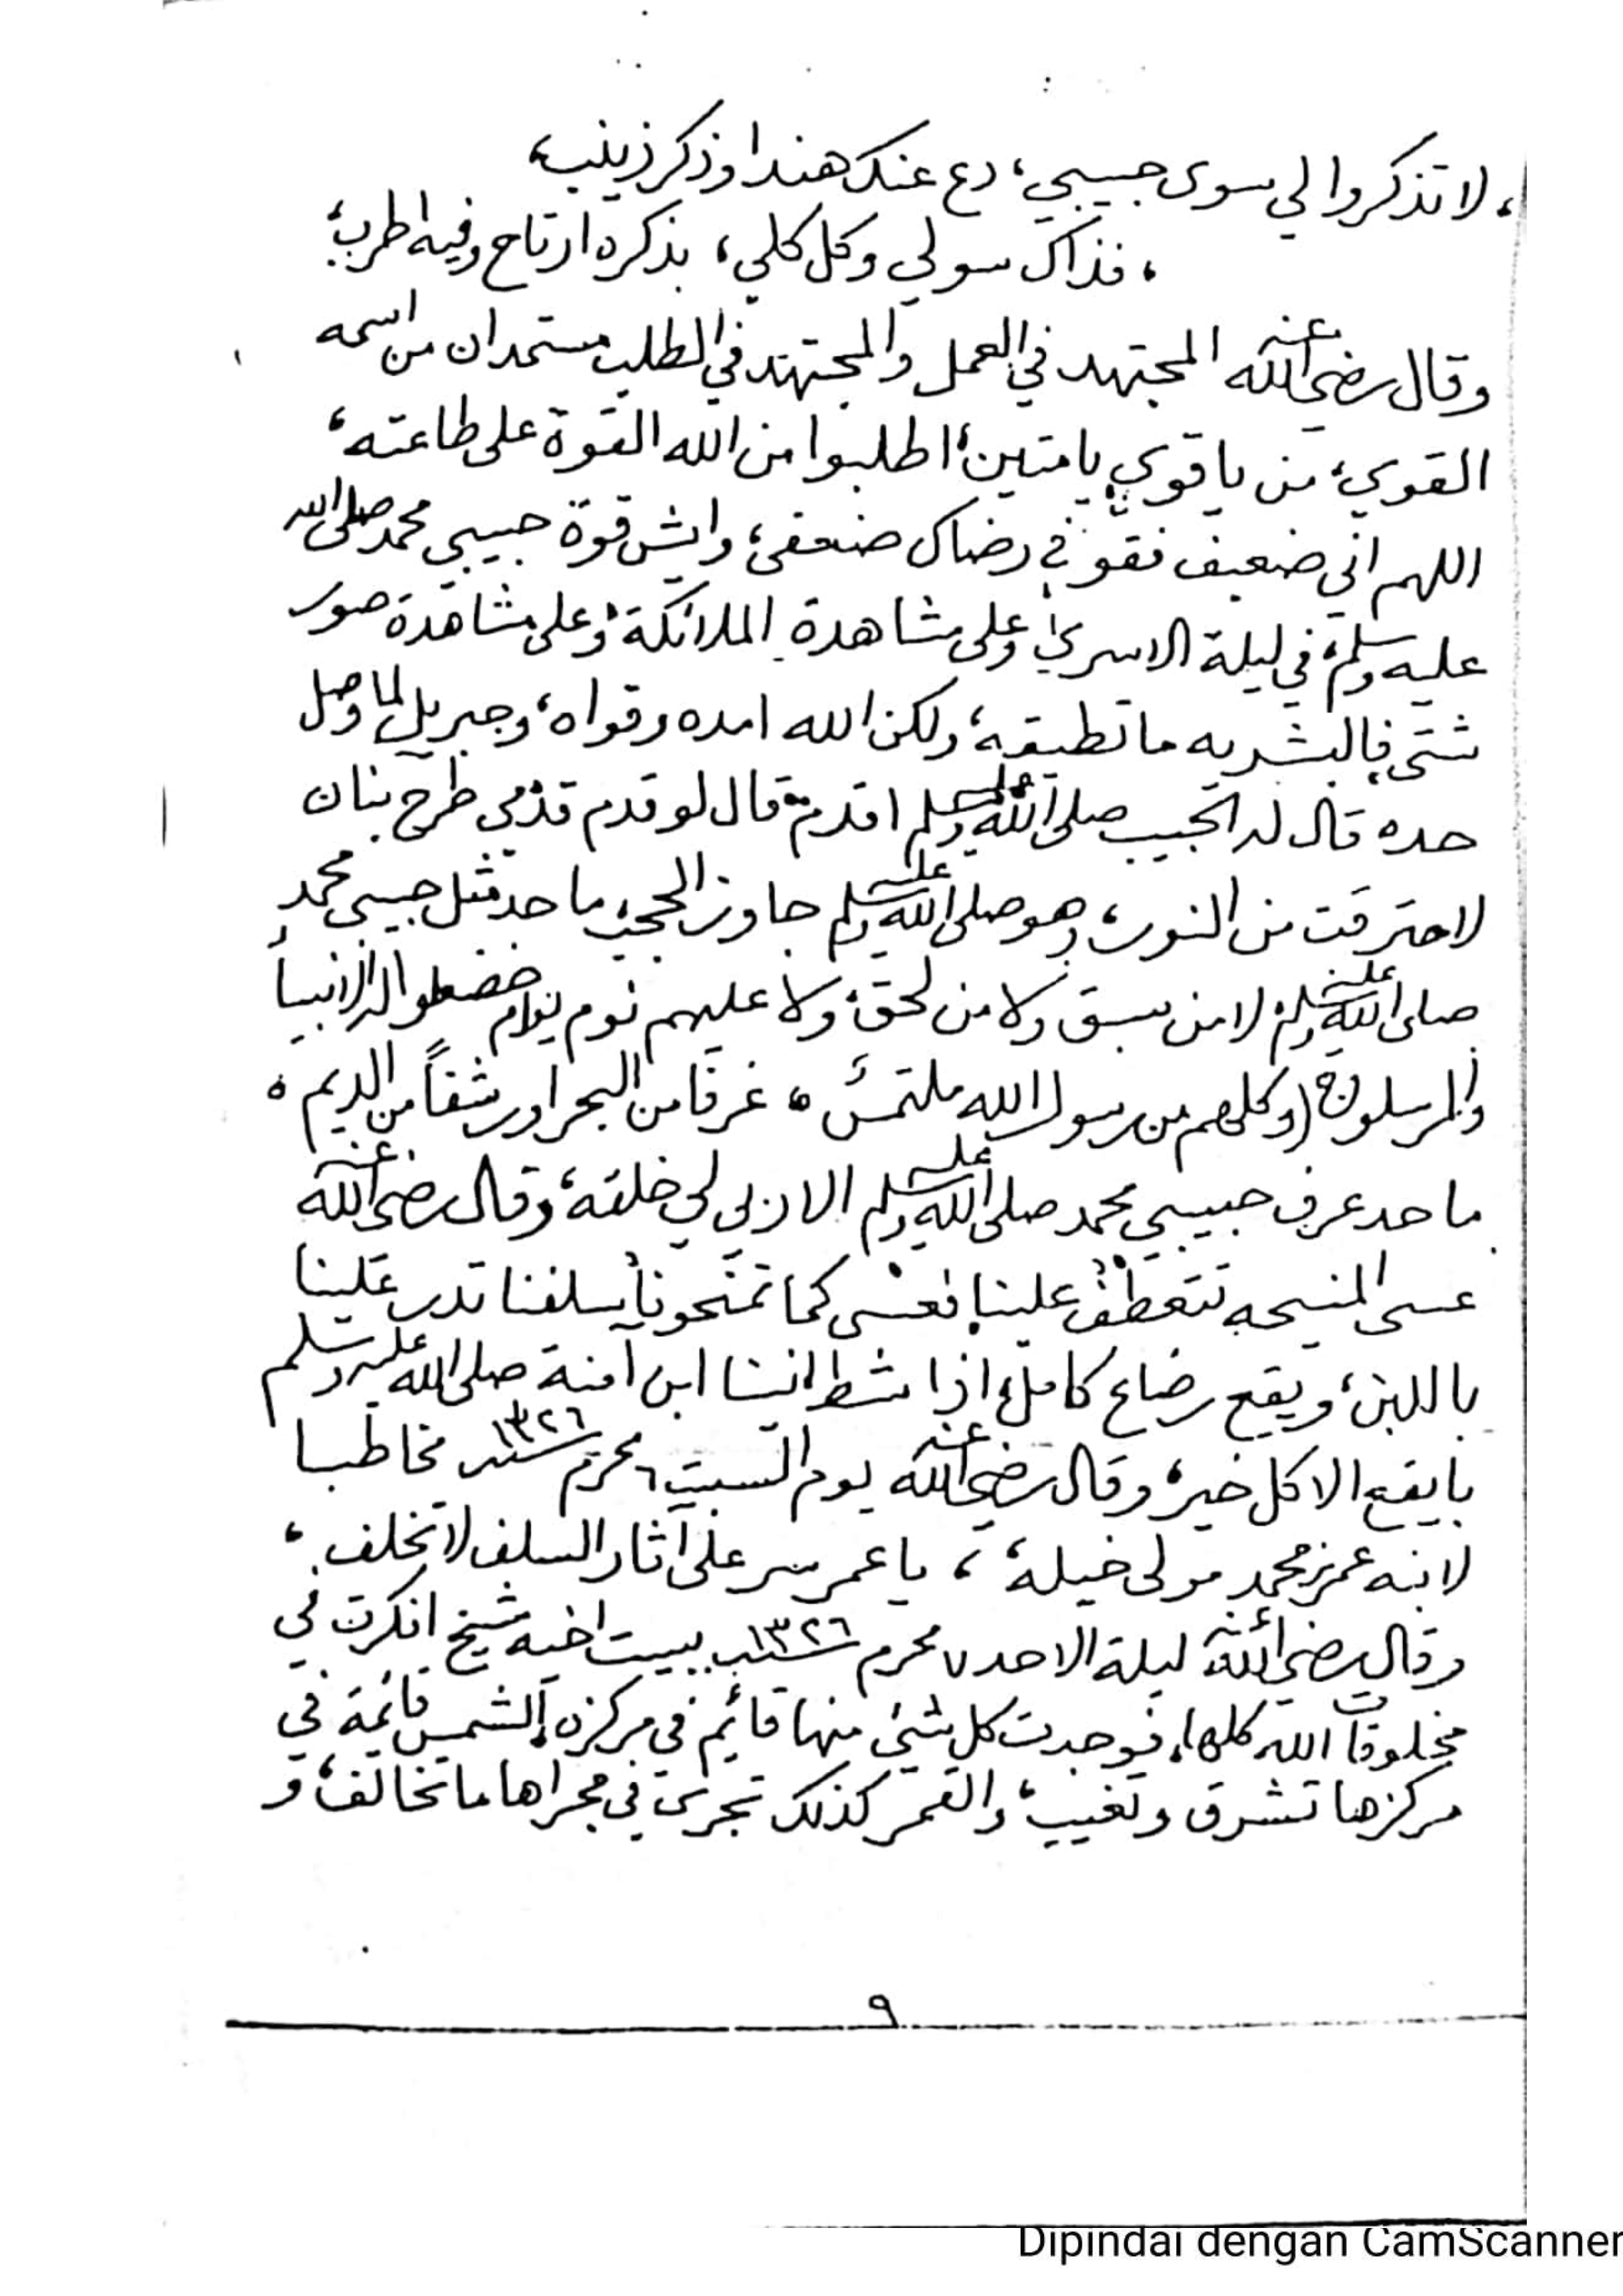 ، لا تذكروا لي سوى حبيبي، دع عنك هندا وذكر زينب،
، فذاك سولي وكل كلي، بذكره ارتاح وفيه اطرب،
وقال رضي الله عنه المجتهد في العمل والمجتهد في الطلب مستمدان من اسمه
القوي، من يا قوي يا متين، اطلبوا من الله القوة على طاعته،
اللهم اني ضعيف فقو في رضاك ضعفي، وايش قوة حبيبي محمد صلى الله
عليه وسلم، في ليلة الاسرى، وعلى مشاهدة الملائكة، وعلى مشاهدة صور
شتى، فالبشريه ما تطيقه، ولكن الله امده وقواه، وجبريل لما وصل
حده قال له الحبيب صلى الله عليه وسلم اقدم، قال لو قدم قدمي طرح بنان
لاحترقت من النور، وهو صلى الله عليه وسلم جاوز الحجب، ما حد مثل حبيبي محمد
صلى الله عليه وسلم، لا من سبق ولا من لحق، ولا عليهم نوم يوم خضعوا له الانبيأ
والمرسلون، (وكلهم من رسول الله ملتمسٌ ، غرفا من البحر اورشفاً من الديم ،
ما حد عرف حبيبي محمد صلى الله عليه وسلم الا ربي لي خلقه، وقال رضي الله عنه
عسى المنيحه تتعطف علينا، فعسى كما تمنحونا سلفنا تدر علينا
با للبن، ويقع رضاع كامل، اذا نشط انسنا ابن آمنة صلى الله عليه وسلم
با يقع الا كل خير، وقال رضي الله عنه يوم السبت ٦ محرم سنة ١٣٢٦ مخاطبا
لابنه عمر بن محمد مولى خيلة، ، يا عمر سر على آثار السلف لا تخلف ،
وقال رضي الله عنه ليلة الاحد ٧ محرم سنة ١٣٢٦ ببيت اخيه شيخ افكرت في
مخلوقات الله كلها، فوجدت كل شئ منها قائم في مركزه، الشمس قائمة في
مركزها تشرق وتغيب، والقمر كذلك تجري في مجراها ما تخالف، و
٩
Dipindai dengan CamScanner